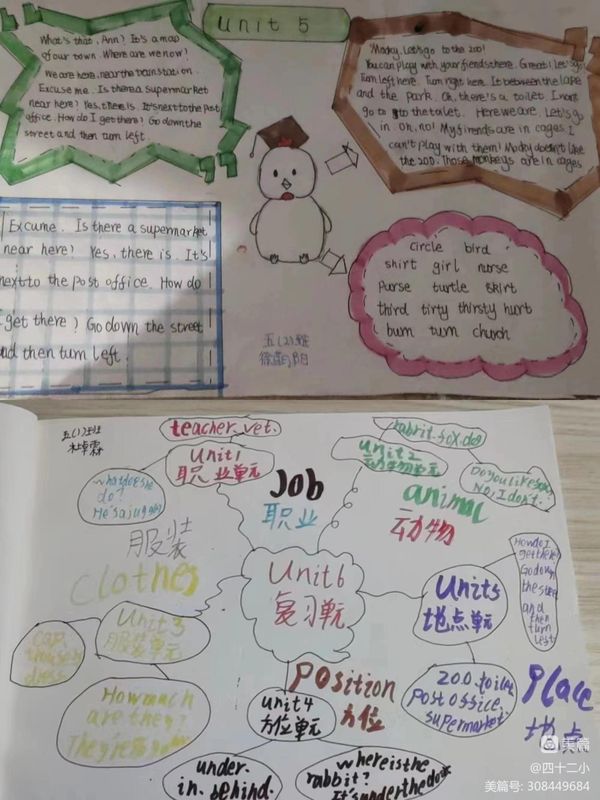 Unit 5
What's that, Ann? It's a map
of our town. Where are we now?
We are here, near the train station.
Excuse me. Is there a supermarket
near here? Yes, there is. It's next to the post
office. How do I get there? Go down the
street and then turn left.
Mocky, let's go to the zoo!
You can play with your friends there. Great! Let's go
Turn left here. Turn right here. It between the lake
and the park. Oh, there's a toilet. I want
go to the toilet. Here we are. Let's go
in. Oh, no! My friends are in cages
I can't play with them! Mocky doesn't like
the zoo. Those monkeys are in cages
Excume. Is there a supermarket
near here? Yes, there is. It's
next to the post office. How do
I get there? Go down the street
and then turn left.
circle bird
shirt girl nurse
purse turtle skirt
third tirty thirsty hurt
burn turn church
五(2)班
五(1)班
teacher. vet.
Unit1
职业单元
what does he
do?
He's a
Job
职业
rabbit. fox. dog
unit2
动物单元
Do you like
No, I don't.
animal
动物
服装
Clothes
Unit 3
服装单元
cap
dress
How much
are they?
They're
Unit6
复习单元
Unit5
地点单元
How do I
get there?
Go down
the street
and
then
turn
left
zoo. toilet
Post office.
supermarket.
Place
地点
Position
方位
unit4
方位单元
under.
in. behind.
where is the
rabbit?
It's under the
美篇
@四十二小
美篇号: 308449684